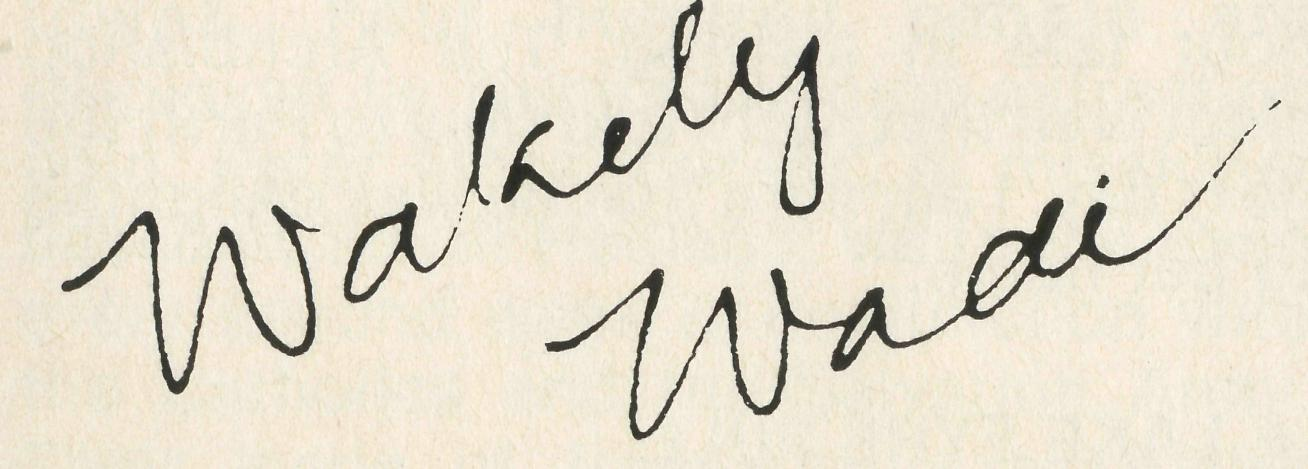 Wakely
Wadi